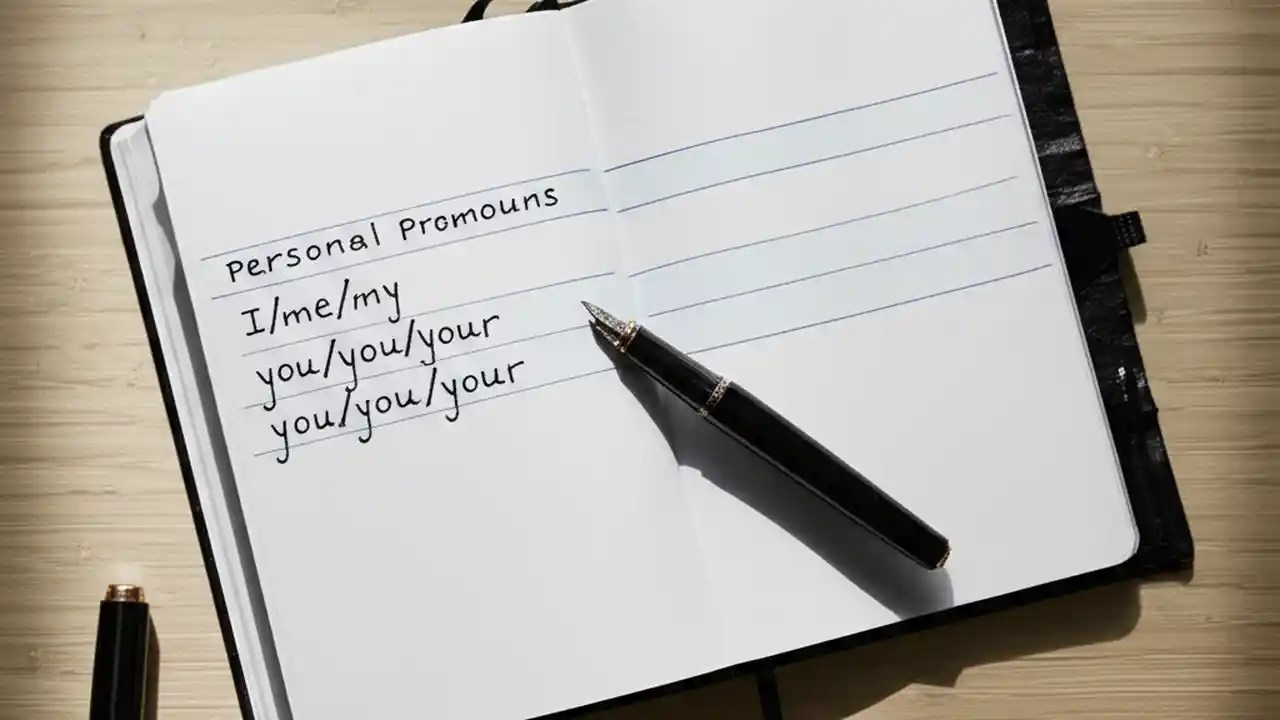 Personal Promouns
I/me/my
you/you/your
you/you/your